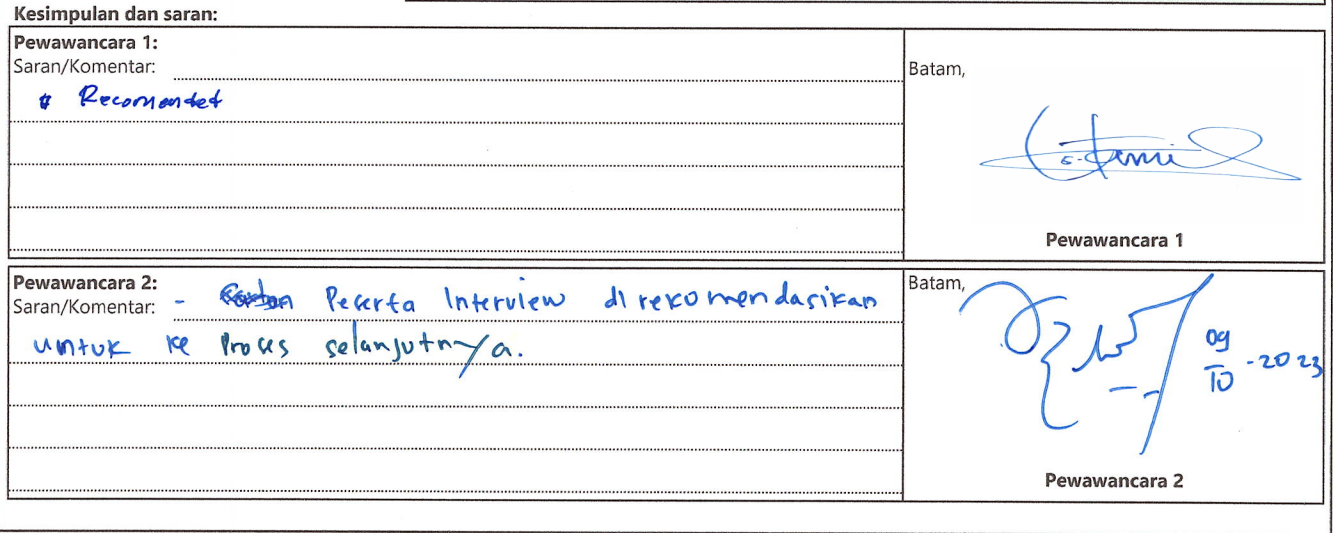 Kesimpulan dan saran:
Pewawancara 1:
Saran/Komentar:
Recomended
Batam,
Pewawancara 1
Pewawancara 2:
Saran/Komentar: - Peserta Interview direkomendasikan
untuk ke Proses selanjutnya.
Batam,
09/10-2023
Pewawancara 2